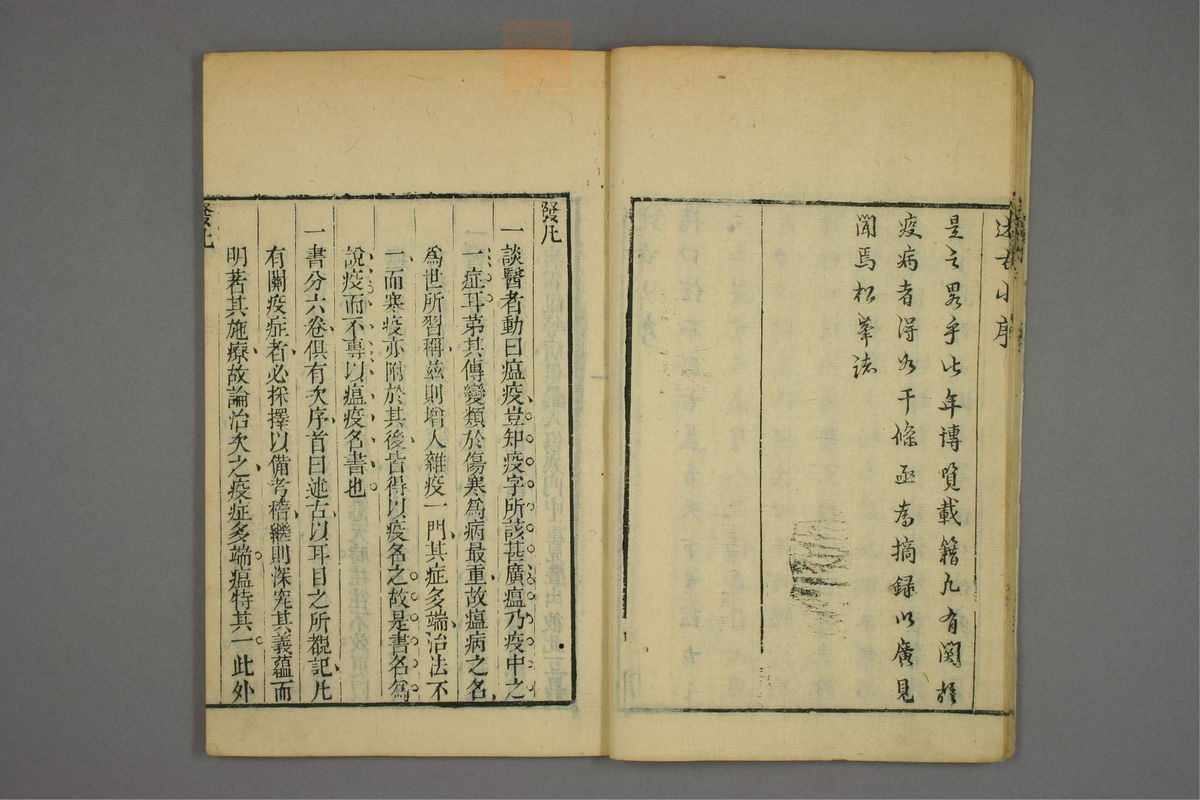 述古小序
是之畧乎比年博覽載籍凡有関於
疫病者得若干條亟為摘録以廣見
聞焉松峯誌
發凡
一談醫者動曰瘟疫豈知疫字所該甚廣瘟乃疫中之
一症耳苐其傳變類於傷寒爲病最重故瘟病之名
爲世所習稱茲則增入雜疫一門其症多端治法不
一而寒疫亦附於其後皆得以疫名之故是書名爲
說疫而不專以瘟疫名書也
一書分六卷俱有次序首曰述古以耳目之所覩記凡
有關疫症者必採擇以備考稽繼則深究其義蘊而
明著其施療故論治次之疫症多端瘟特其一此外
發凡